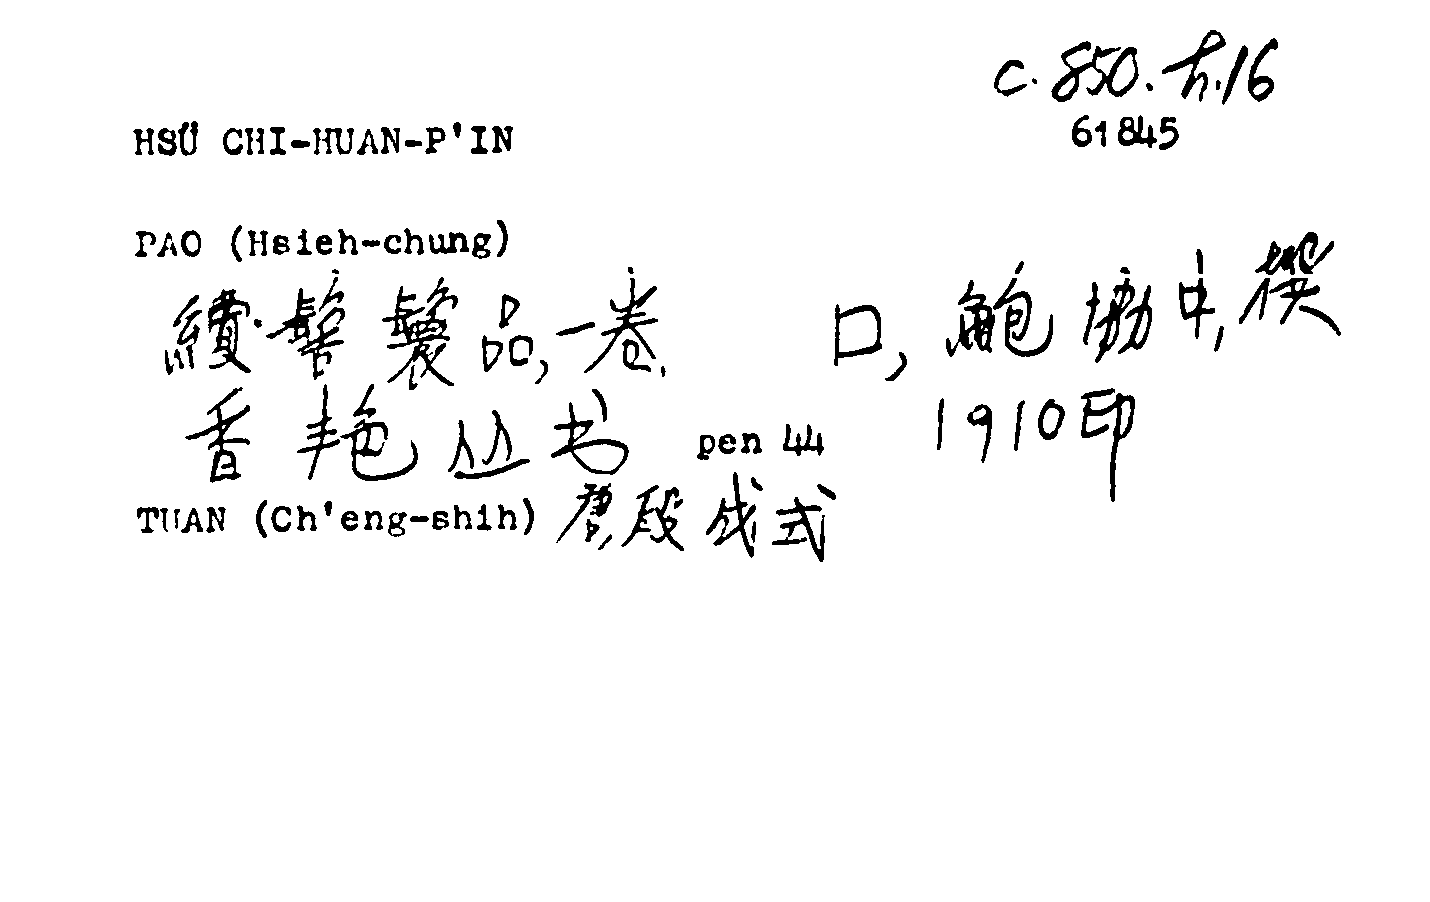 C. 850. 右.16
61845
HSÜ CHI-HUAN-P'IN
PAO (Hsieh-chung)
續髻鬟品,一卷. 口, 鮑協中,撰
香艳丛书 pen 44 1910印
TUAN (Ch'eng-shih) 唐,段成式